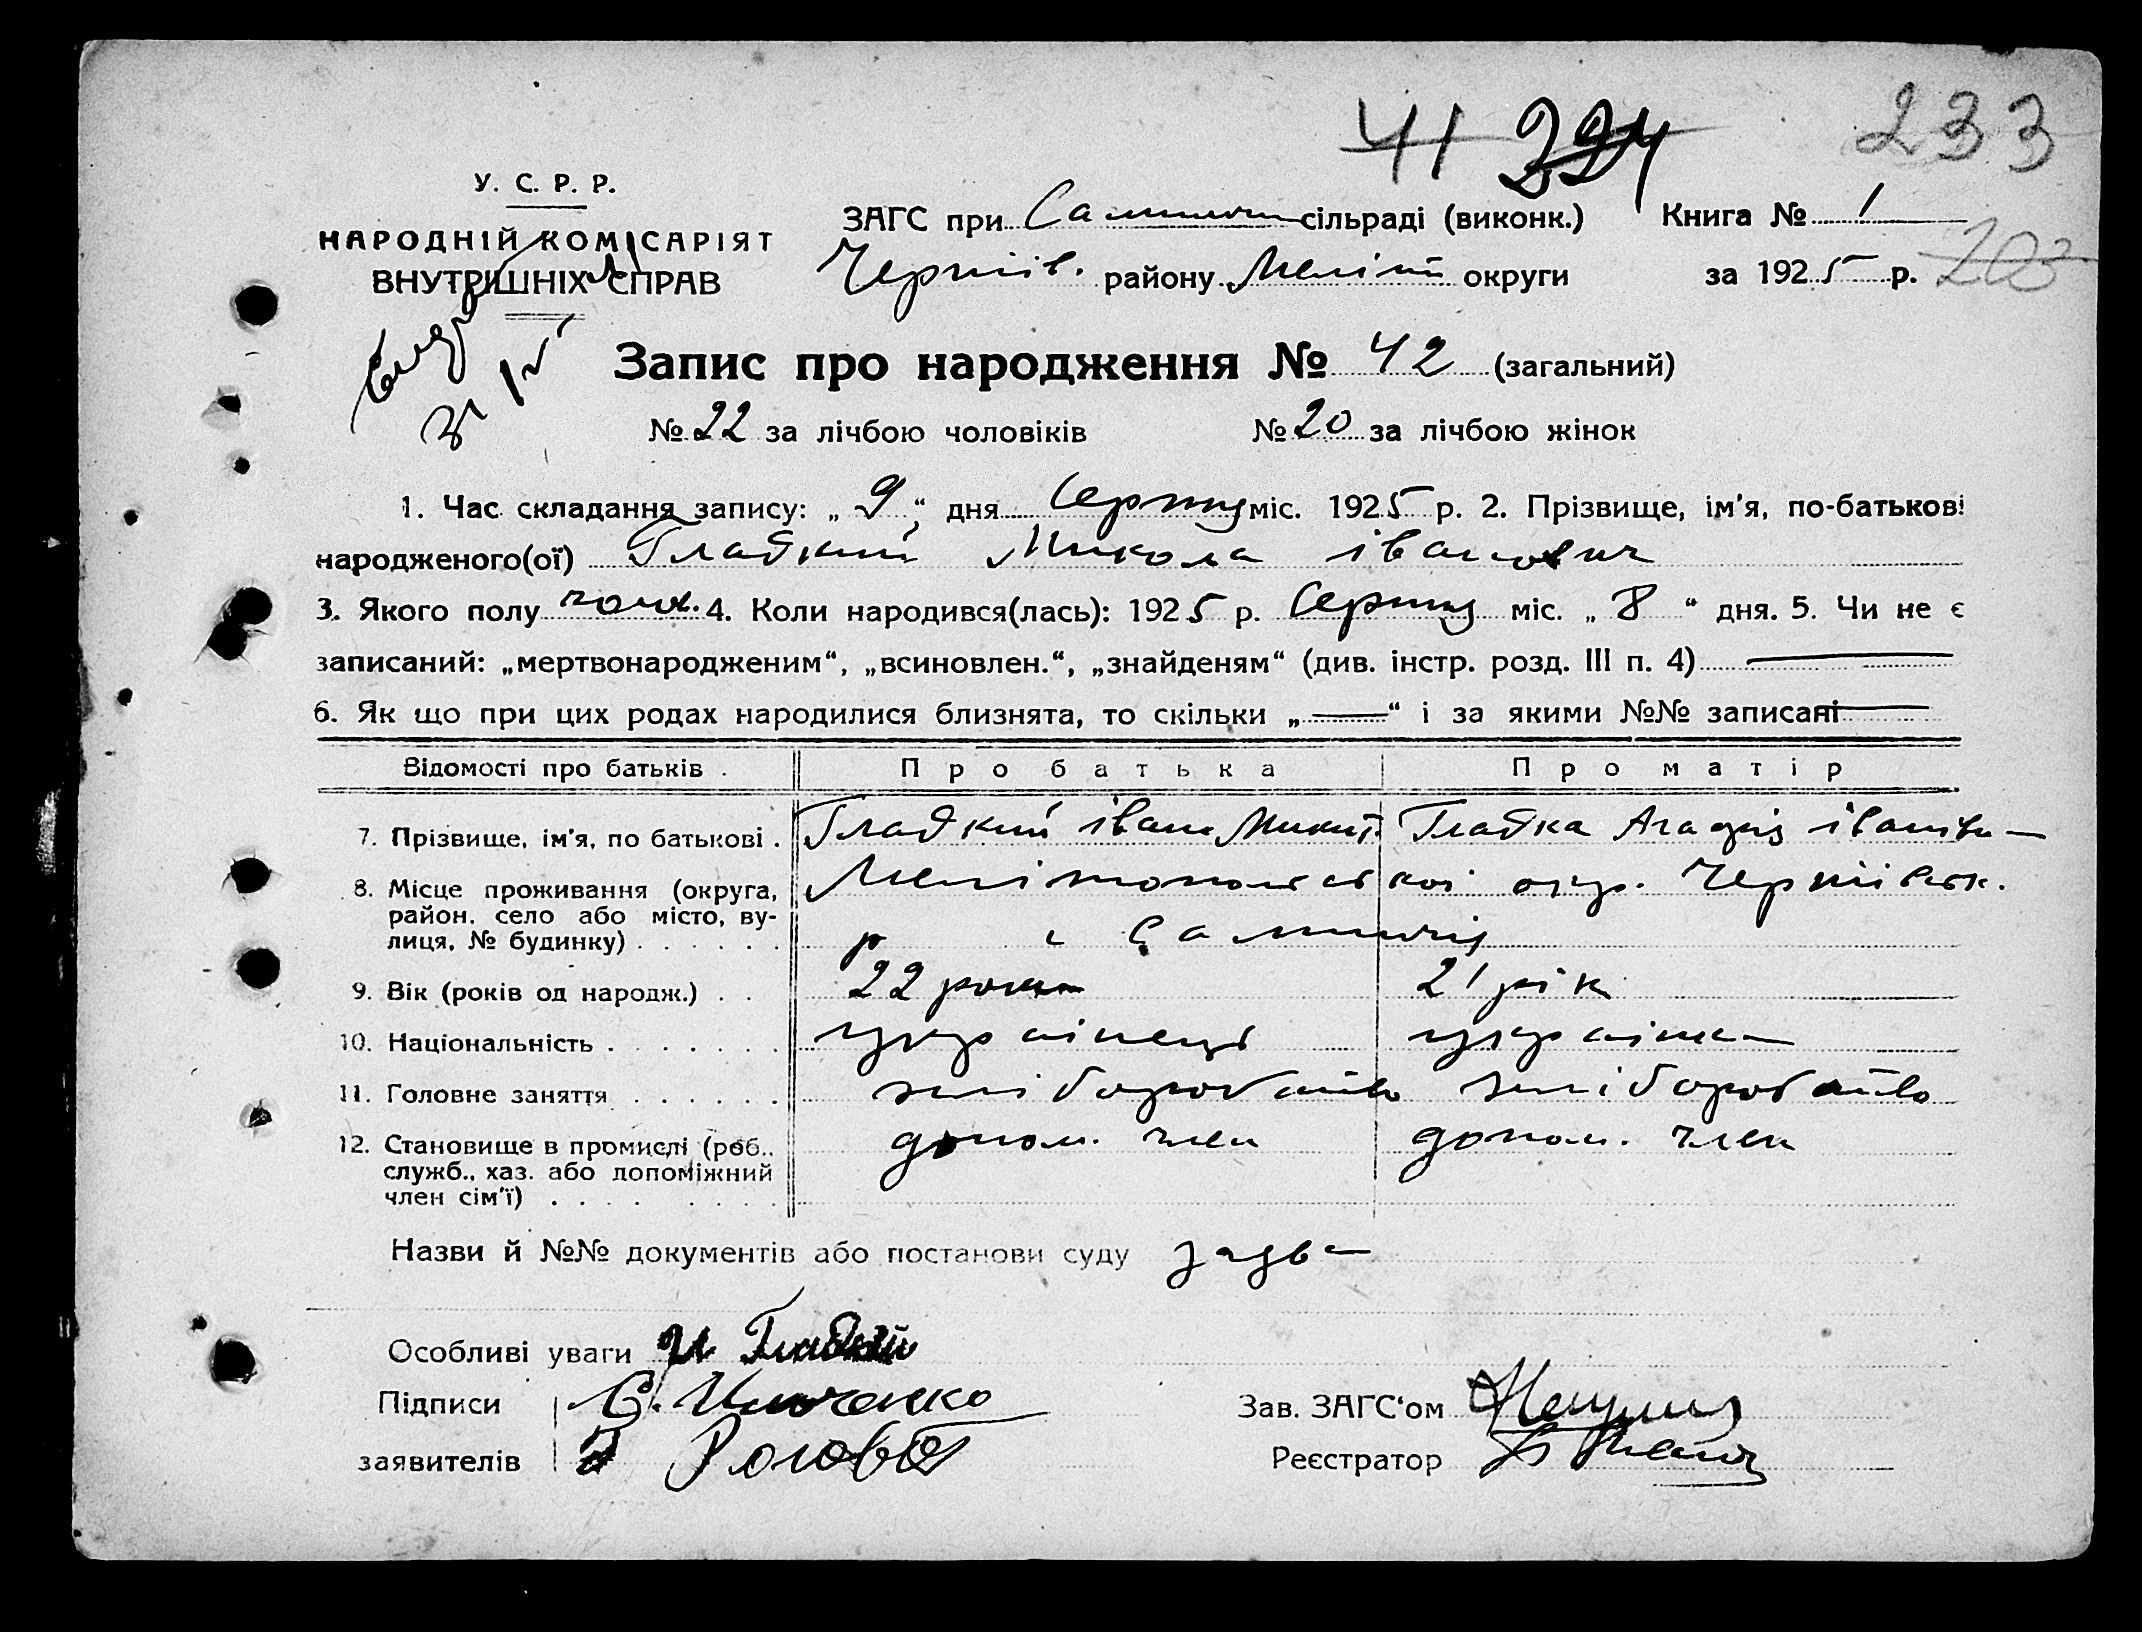 41 224 233
У. С. Р. Р.
НАРОДНІЙ КОМІСАРІЯТ
ВНУТРІШНІХ СПРАВ
ЗАГС при сільраді (виконк.) Книга № 1
Черніів. району Меліт округи за 1925 р. 203
Запис про народження № 42 (загальний)
№ 22 за лічбою чоловіків № 20 за лічбою жінок
1. Час складання запису: „ 9 “ дня Серпня міс. 1925 р. 2. Прізвище, ім'я, по-батькові
народженого(ої) Гладкий Микола іванович
3. Якого полу чолов. 4. Коли народився(лась): 1925 р. Серпня міс. „ 8 “ дня. 5. Чи не є
записаний: „мертвонародженим“, „всиновлен.“, „знайденям“ (див. інстр. розд. III п. 4)
6. Як що при цих родах народилися близнята, то скільки „ “ і за якими №№ записані
Відомості про батьків. Про батька Про матір
7. Прізвище, ім'я, по батькові . Гладкий іван Микит. Гладка Агафія іванівн
8. Місце проживання (округа, Мелітопольської окр. Черніівськ.
район, село або місто, ву-
лиця, № будинку) . . . . . . р
9. Вік (років од народж.) . . 22 роки 21 рік
10. Національність . . . . . . . українець українка
11. Головне заняття . . . . . . хліборобство хліборобство
12. Становище в промислі (роб., допом. член допом. член
служб., хаз. або допоміжний
член сім'ї) . . . . . . . .
Назви й №№ документів або постанови суду заява
Особливі уваги И Гладкий
Підписи Ильченко Зав. ЗАГС'ом
заявителів Реєстратор